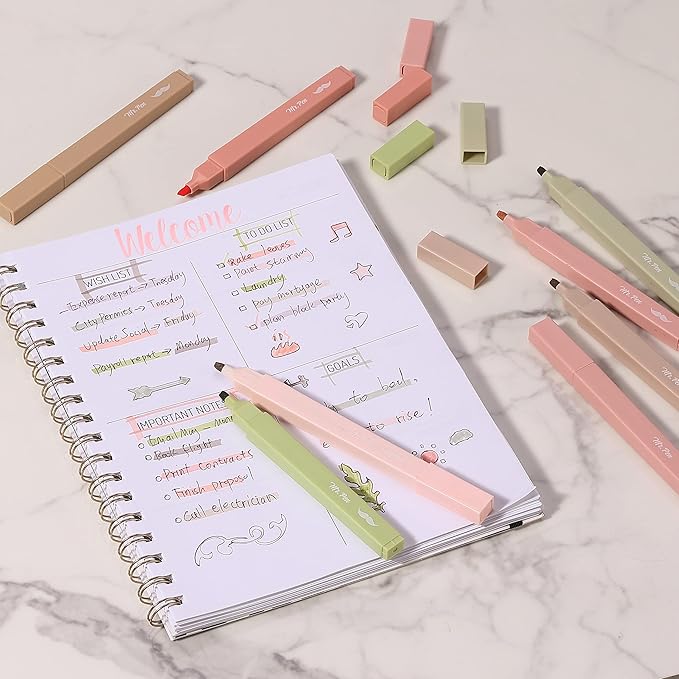 Welcome
WISH LIST
Expense report → Tuesday
City Permies → Tuesday
Update Social → Friday
Payroll report → Monday
TO DO LIST
Rake leaves
Paint stairway
Laundry
Pay mortgage
Plan block party
IMPORTANT NOTE
Email
Book flight
Print Contracts
Finish proposal
Call electrician
GOALS
to
to rise!
Mr. Pen
Mr. Pen
Mr. Pen
Mr. Pen
Mr. Pen
Mr. Pen
Mr. Pen